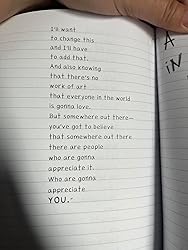 I'll want
to change this
and I'll have
to add that.
And also knowing
that there's no
work of art
that everyone in the world
is gonna love.
But somewhere out there—
you've got to believe
that somewhere out there
there are people
who are gonna
appreciate it.
Who are gonna
appreciate
YOU."
A
iN